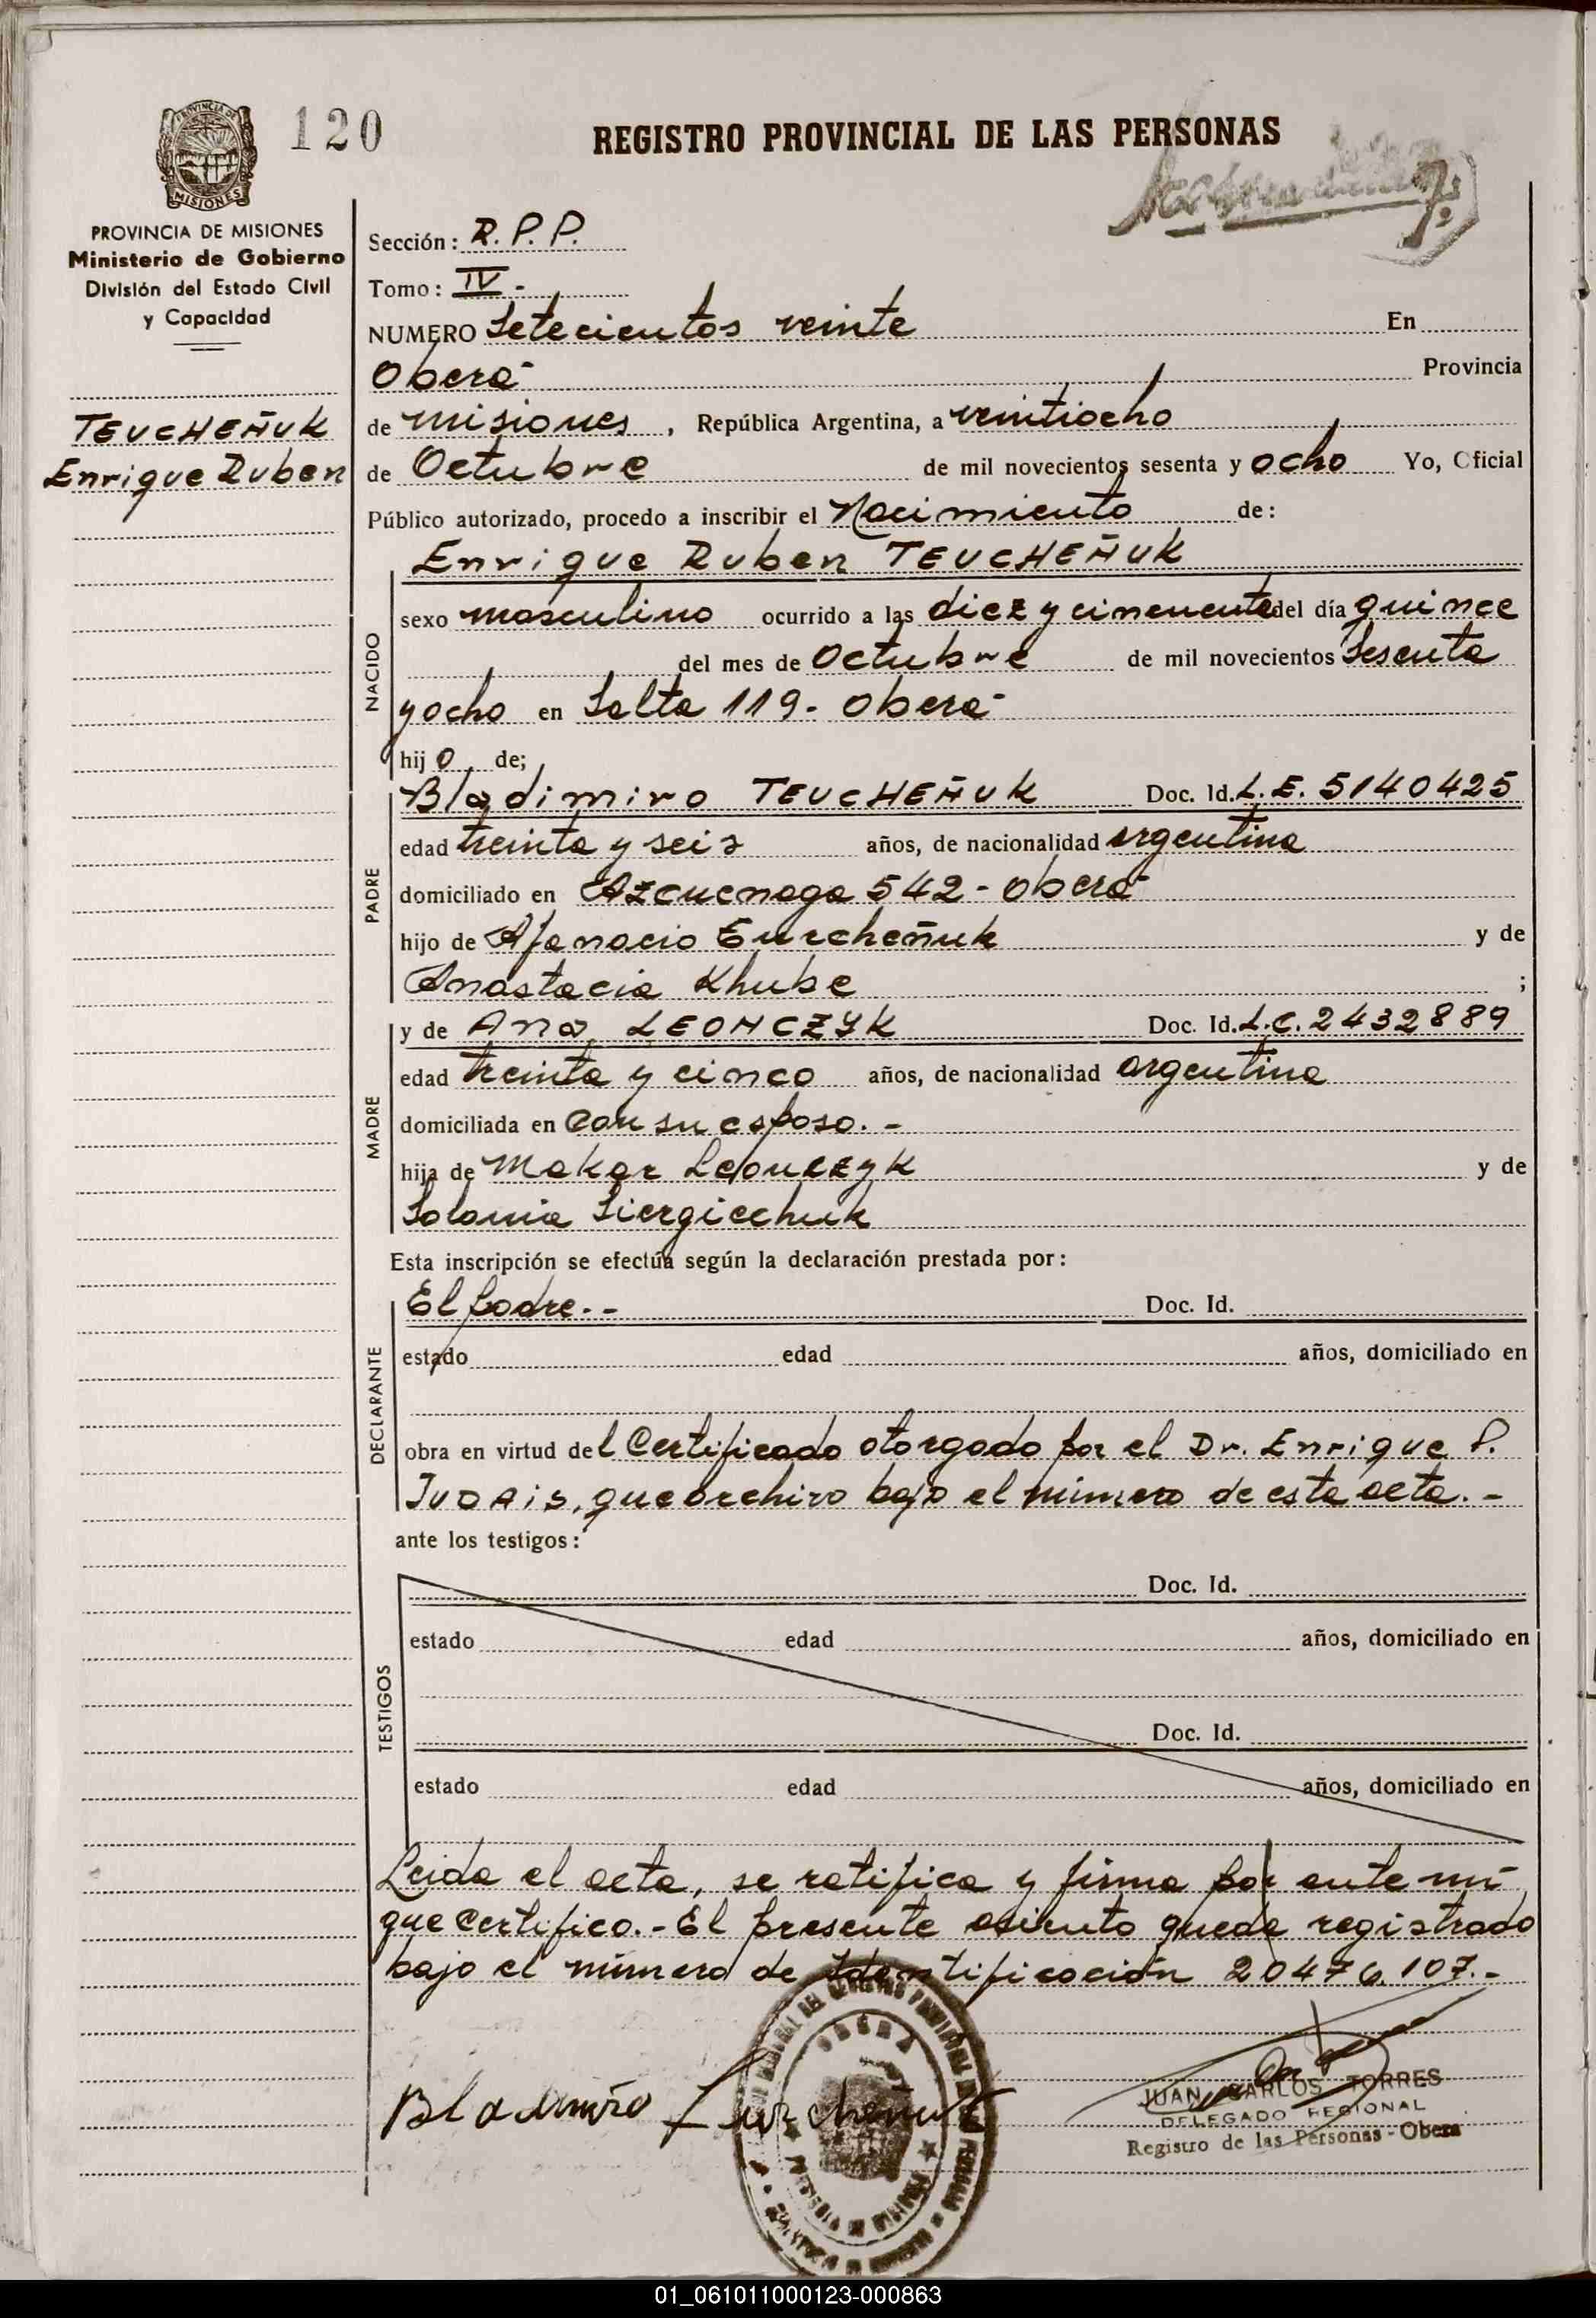 PROVINCIA DE
MISIONES
120
REGISTRO PROVINCIAL DE LAS PERSONAS
PROVINCIA DE MISIONES
Ministerio de Gobierno
División del Estado Civil
y Capacidad
TEUCHEÑUK
Enrique Ruben
Sección: R.P.P.
Tomo: IV -
NUMERO Setecientos veinte En
Oberá Provincia
de Misiones, República Argentina, a veintiocho
de Octubre de mil novecientos sesenta y ocho Yo, Oficial
Público autorizado, procedo a inscribir el Nacimiento de:
Enrique Ruben TEUCHEÑUK
NACIDO
sexo masculino ocurrido a las diez y cincuenta del día quince
del mes de Octubre de mil novecientos Sesenta
y ocho en Salta 119 - Oberá
hijo de;
PADRE
Bladimiro TEUCHEÑUK Doc. Id. L.E. 5140425
edad treinta y seis años, de nacionalidad argentina
domiciliado en Azcuenaga 542 - Oberá
hijo de Afanacio Eurcheñuk y de
Anastacia Khube ;
MADRE
y de Ana LEONCZYK Doc. Id. L.C. 2432889
edad treinta y cinco años, de nacionalidad argentina
domiciliada en Con su esposo. -
hija de Makar Leonczyk y de
Solomia Siergiechuk
Esta inscripción se efectúa según la declaración prestada por:
DECLARANTE
El padre. - Doc. Id.
estado edad años, domiciliado en
obra en virtud del Certificado otorgado por el Dr. Enrique P.
JUDAIS, que archivo bajo el número de esta acta. -
ante los testigos:
TESTIGOS
Doc. Id.
estado edad años, domiciliado en
Doc. Id.
estado edad años, domiciliado en
Leida el acta, se ratifica y firma por ante mí
que certifico. - El presente asiento queda registrado
bajo el número de Identificación 20476.107. -
OBERA
Bladimiro
JUAN CARLOS TORRES
DELEGADO REGIONAL
Registro de las Personas - Obera
01_061011000123-000863